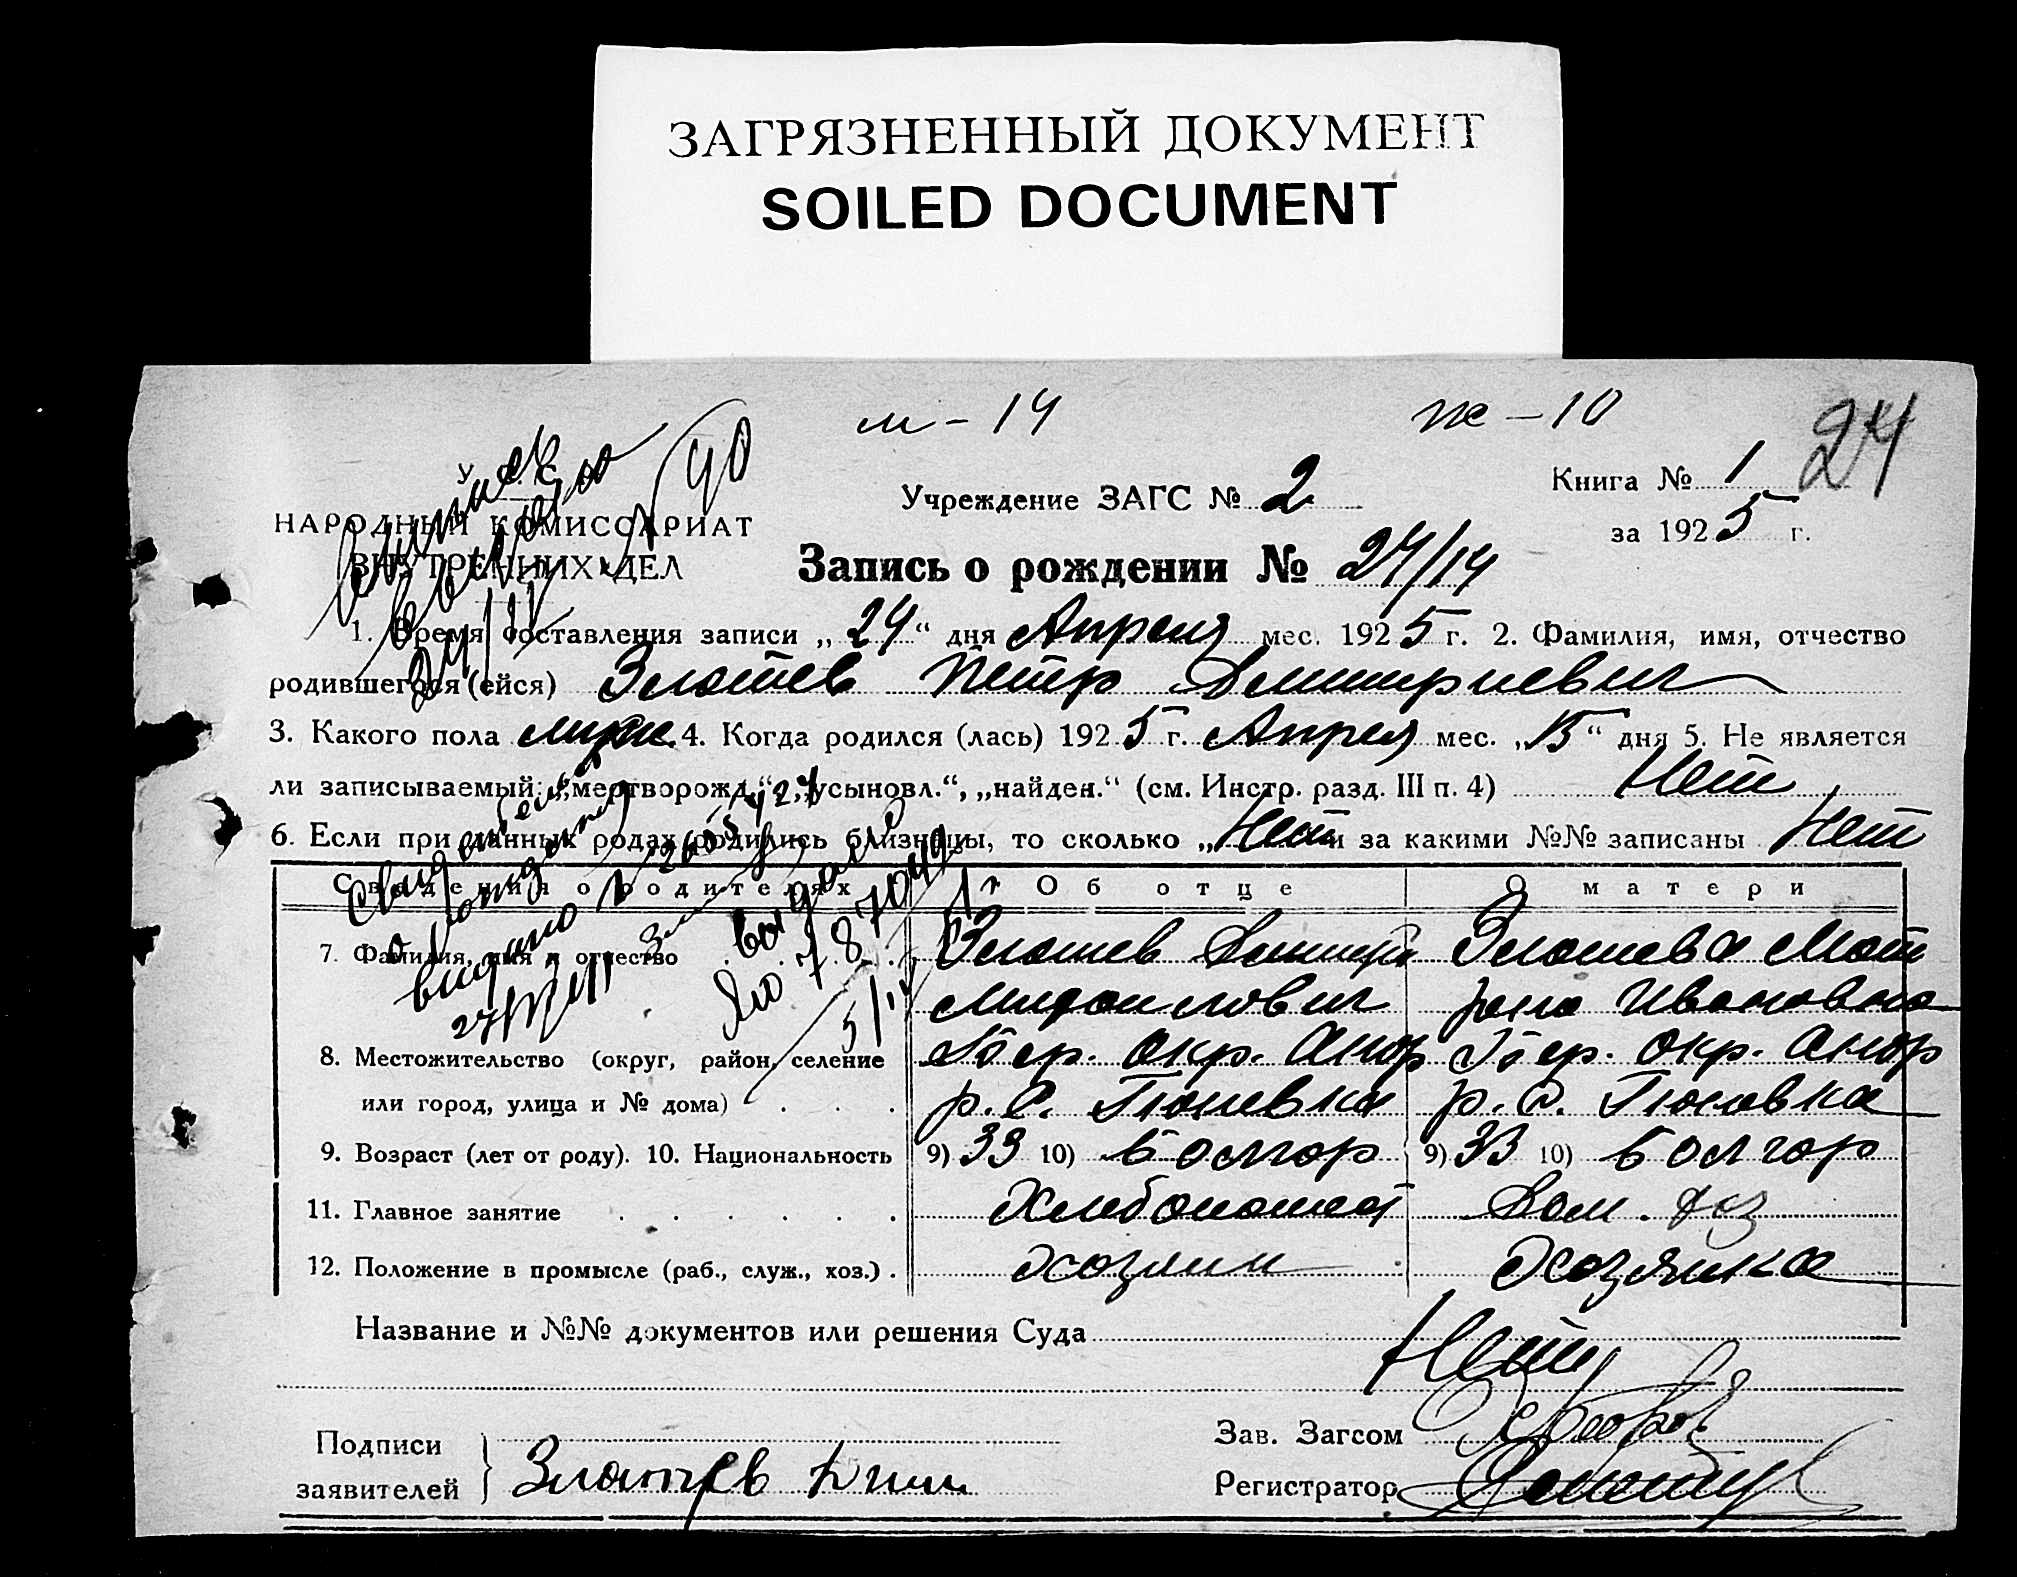 ЗАГРЯЗНЕННЫЙ ДОКУМЕНТ
SOILED DOCUMENT
м - 14 ж - 10 24
У. С.
НАРОДНЫЙ КОМИССАРИАТ
ВНУТРЕННИХ ДЕЛ
Учреждение ЗАГС № 2
Книга № 1
за 1925 г.
Запись о рождении № 24/14
1. Время составления записи „24“ дня Апреля мес. 1925 г. 2. Фамилия, имя, отчество
родившегося (ейся) Златев Петр Дмитриевич
3. Какого пола мужс. 4. Когда родился (лась) 1925 г. Апреля мес. „15“ дня 5. Не является
ли записываемый: „мертворожд.“, „усыновл.“, „найден.“ (см. Инстр. разд. III п. 4) Нет
6. Если при данных родах родились близнецы, то сколько „Нет и за какими №№ записаны Нет
Сведения о родителях Об отце О матери
7. Фамилия, имя и отчество Златев Дмитри Златева Мат
Михайлович рена Ивановна
8. Местожительство (округ, район, селение окр. окр.
или город, улица и № дома) р. С. Гюневка р. С. Гюневка
9. Возраст (лет от роду). 10. Национальность 9) 33 10) болгар 9) 33 10) болгар
11. Главное занятие Хлебопашест Дом. хоз
12. Положение в промысле (раб., служ., хоз.) хозяин хозяйка
Название и №№ документов или решения Суда Нет
Подписи
заявителей Златев Дми
Зав. Загсом
Регистратор
Свид
о рожден
выдано
выдано
40